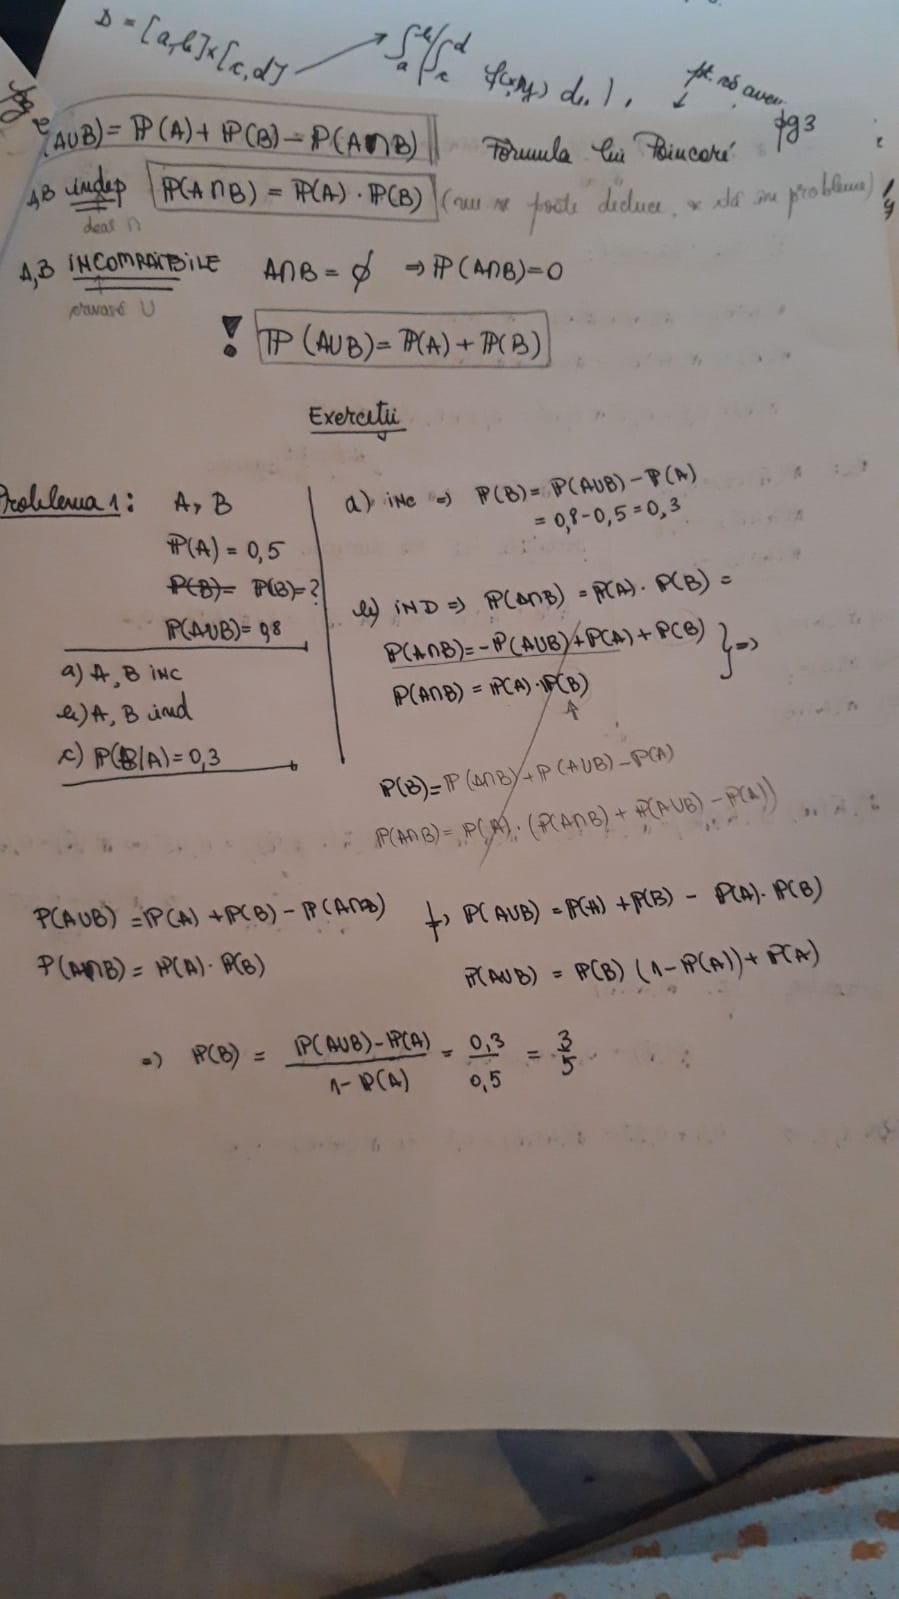 D = [a,b]x[c,d] → ∫a b ∫c d f(x,y) d
pt. să avem
pg 3
(A∪B) = P(A) + P(B) - P(A∩B) Formula lui Poincaré
A,B indep P(A∩B) = P(A) · P(B) (nu se poate deduce, se dă în probleme) !
doar ∩
A,B INCOMPATIBILE A∩B = ∅ ⇒ P(A∩B)=0
U
! P(A∪B) = P(A) + P(B)
Exercitii
Problema 1: A, B
P(A) = 0,5
P(B)= P(B)=?
P(A∪B)= 0,8
a) A, B inc
b) A, B ind
c) P(B/A)=0,3
a) inc ⇒ P(B)= P(A∪B) - P(A)
= 0,8-0,5=0,3
b) IND ⇒ P(A∩B) = P(A) · P(B) =
P(A∩B)= -P(A∪B)+P(A)+P(B) } ⇒
P(A∩B) = P(A)·P(B)
P(B)=P(A∩B)+P(A∪B)-P(A)
P(A∩B)= P(A)·(P(A∩B) + P(A∪B) - P(A))
P(A∪B) = P(A) + P(B) - P(A∩B) P(A∪B) = P(A) + P(B) - P(A)·P(B)
P(A∩B) = P(A)·P(B) P(A∪B) = P(B) (1-P(A)) + P(A)
⇒ P(B) = P(A∪B)-P(A) / 1-P(A) = 0,3 / 0,5 = 3/5